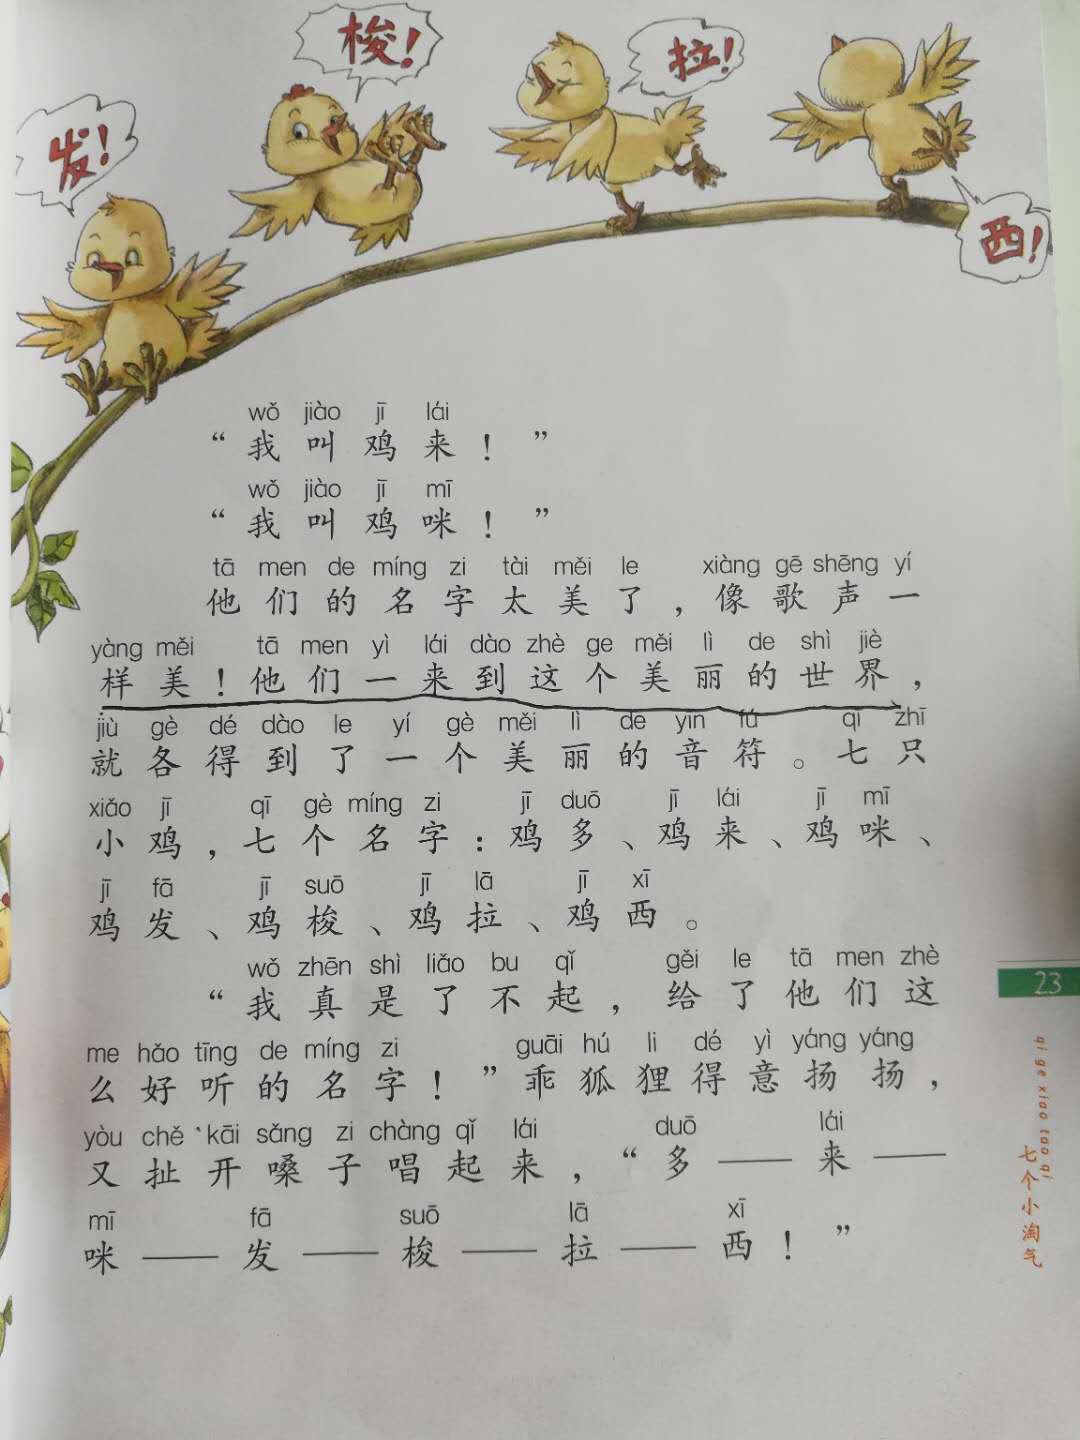 发！
梭！
拉！
西！
wǒ jiào jī lái
“我叫鸡来！”
wǒ jiào jī mī
“我叫鸡咪！”
tā men de míng zi tài měi le xiàng gē shēng yí
他们的名字太美了，像歌声一
yàng měi tā men yì lái dào zhè ge měi lì de shì jiè
样美！他们一来到这个美丽的世界，
jiù gè dé dào le yí gè měi lì de yīn fú qī zhī
就各得到了一个美丽的音符。七只
xiǎo jī qī gè míng zi jī duō jī lái jī mī
小鸡，七个名字：鸡多、鸡来、鸡咪、
jī fā jī suō jī lā jī xī
鸡发、鸡梭、鸡拉、鸡西。
wǒ zhēn shì liǎo bu qǐ gěi le tā men zhè
“我真是了不起，给了他们这
me hǎo tīng de míng zi guāi hú li dé yì yáng yáng
么好听的名字！”乖狐狸得意扬扬，
yòu chě kāi sǎng zi chàng qǐ lái duō lái
又扯开嗓子唱起来，“多——来——
mī fā suō lā xī
咪——发——梭——拉——西！”
23
qi ge xiao tao qi
七个小淘气